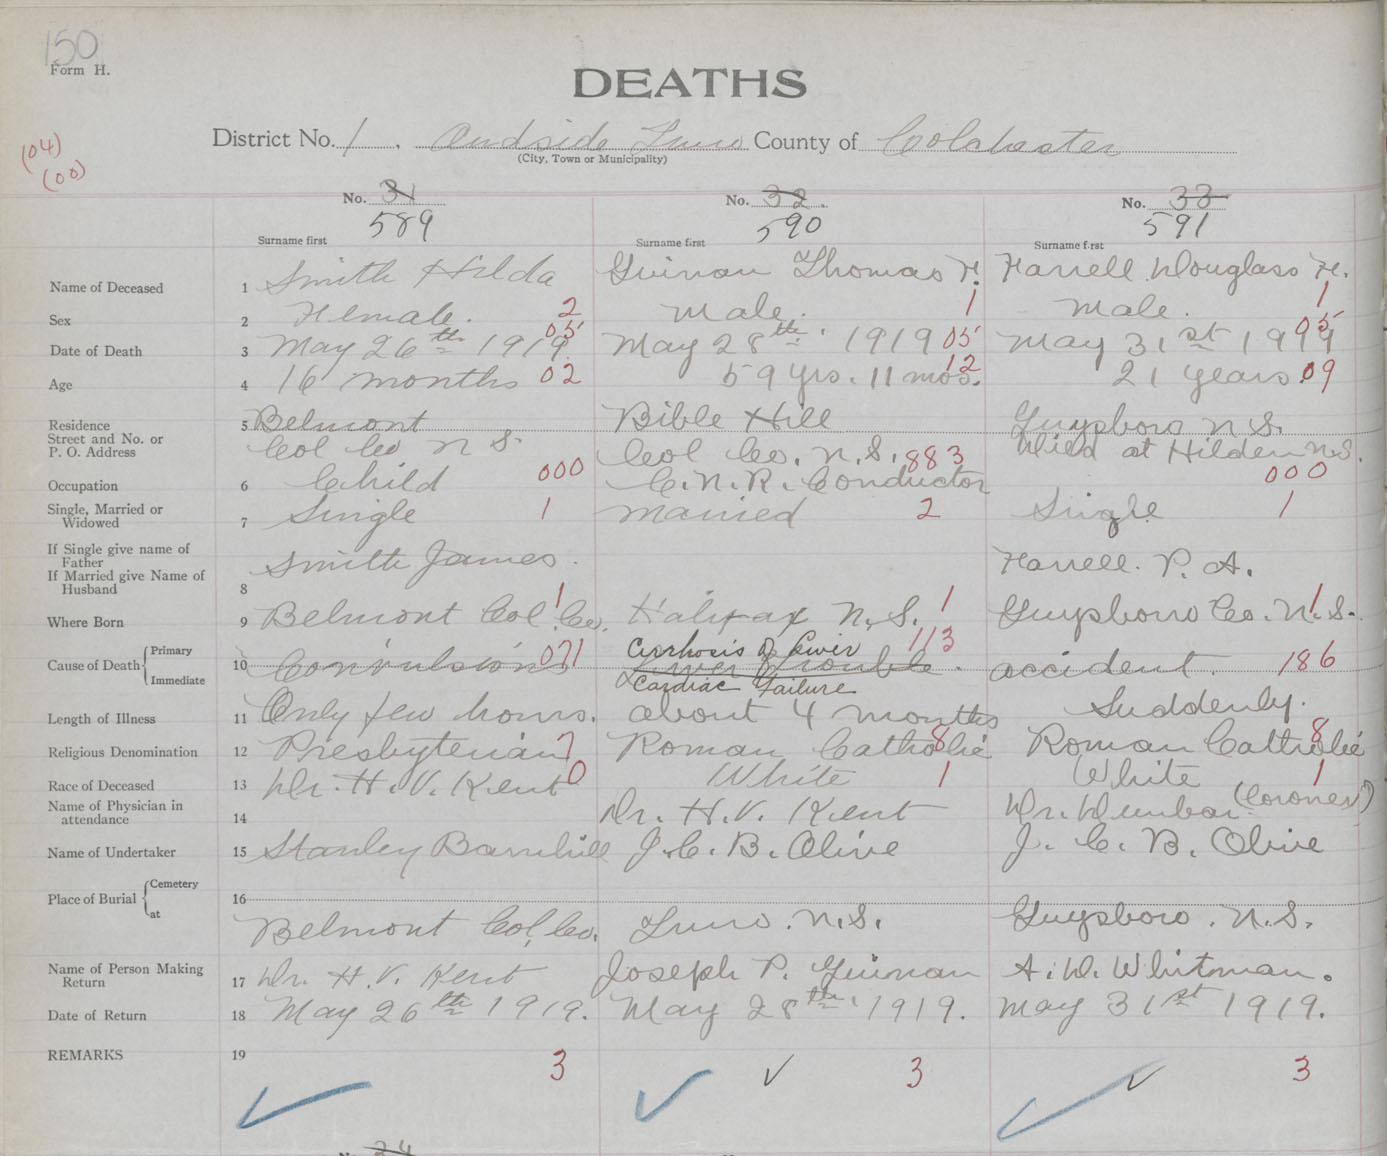 150
Form H.
DEATHS
District No. 1, Outside Truro County of Colchester
(City, Town or Municipality)
(04)
(00)
No. 31
589
Surname first
No. 32
590
Surname first
No. 33
591
Surname first
Name of Deceased 1 Smith Hilda Guinan Thomas F. Farrell Douglass F.
Sex 2 Female. 2 Male. 1 Male. 1
Date of Death 3 May 26th 1919 05 May 28th 1919 05 May 31st 1919 05
Age 4 16 months 02 59 yrs. 11 mos. 12 21 years. 09
Residence 5 Belmont Bible Hill Guysboro N.S.
Street and No. or
P. O. Address Col Co N S. Col Co. N.S. Died at Hilden N.S.
Occupation 6 Child 000 C.N.R. Conductor 883 000
Single, Married or
Widowed 7 Single 1 Married 2 Single 1
If Single give name of
Father Smith James. Farrell. P. A.
If Married give Name of
Husband 8
Where Born 9 Belmont Col. Co. 1 Halifax N.S. 1 Guysboro Co. N.S. 1
Cause of Death { Primary Immediate 10 Convulsions 071 Cirrhosis of Liver 113 accident. 186
Liver Trouble.
Cardiac Failure
Length of Illness 11 Only few hours. about 4 months Suddenly.
Religious Denomination 12 Presbyterian 7 Roman Catholic 8 Roman Catholic 8
Race of Deceased 13 Dr. H. V. Kent 0 White 1 White 1
Name of Physician in
attendance 14 Dr. H. V. Kent Dr. Dunbar (Coroner)
Name of Undertaker 15 Stanley Barnhill J. C. B. Olive J. C. B. Olive
Place of Burial { Cemetery at 16
Belmont Col. Co. Truro. N.S. Guysboro. N.S.
Name of Person Making
Return 17 Dr. H. V. Kent Joseph P. Guinan A. D. Whitman.
Date of Return 18 May 26th 1919. May 28th 1919. May 31st 1919.
REMARKS 19 3 3 3
No. 34